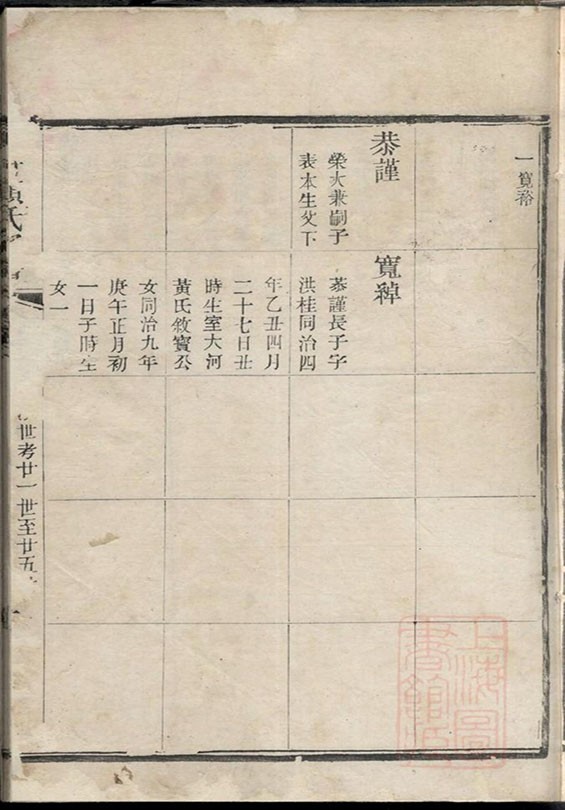 一寬裕
恭謹
榮大兼嗣子
表本生父下
寬綽
恭謹長子字
洪桂同治四
年乙丑四月
二十七日丑
時生室大河
黃氏敘賓公
女同治九年
庚午正月初
一日子時生
女一
氏
世考廿一世至廿五
上海圖書館藏